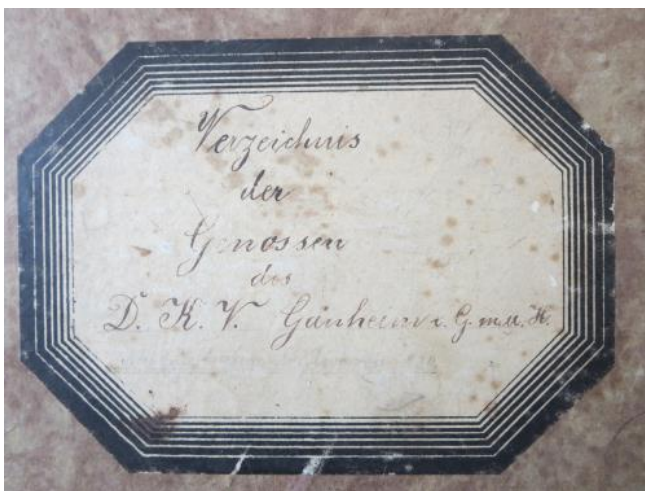 Verzeichnis
der
Genossen
des
D. K. V. Gänheim e. G. m. u. H.